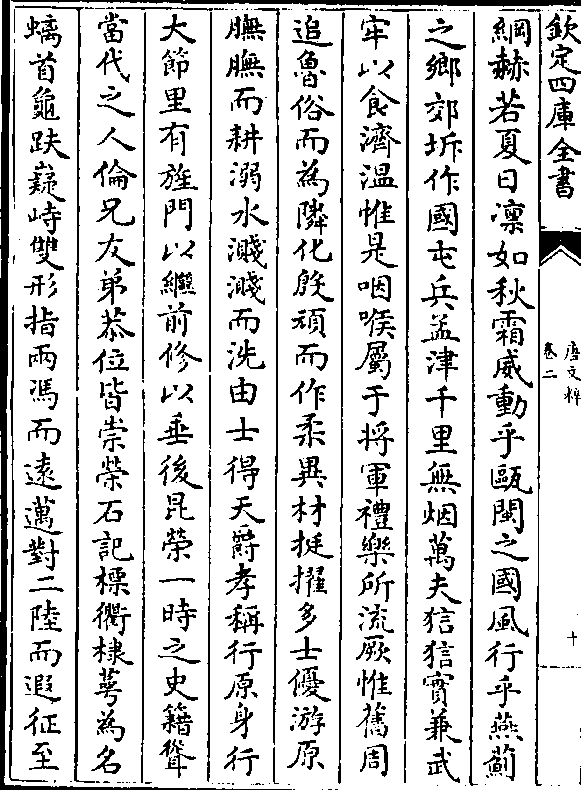 欽定四庫全書
唐文粹
卷二
十
綱赫若夏日凛如秋霜威動乎甌閩之國風行乎燕薊
之鄉郊坼作國屯兵孟津千里無烟萬夫狺狺實兼武
牢以食濟温惟是咽喉屬于將軍禮樂所流厥惟舊周
追魯俗而為隣化殷頑而作柔異材挺擢多士優游原
膴膴而耕溺水濺濺而洗由士得天爵孝稱行原身行
大節里有旌門以繼前修以垂後昆榮一時之史籍聳
當代之人倫兄友弟恭位皆崇榮石記標衢棣萼為名
螭首龜趺嶷峙雙形指兩馮而遠邁對二陸而遐征至